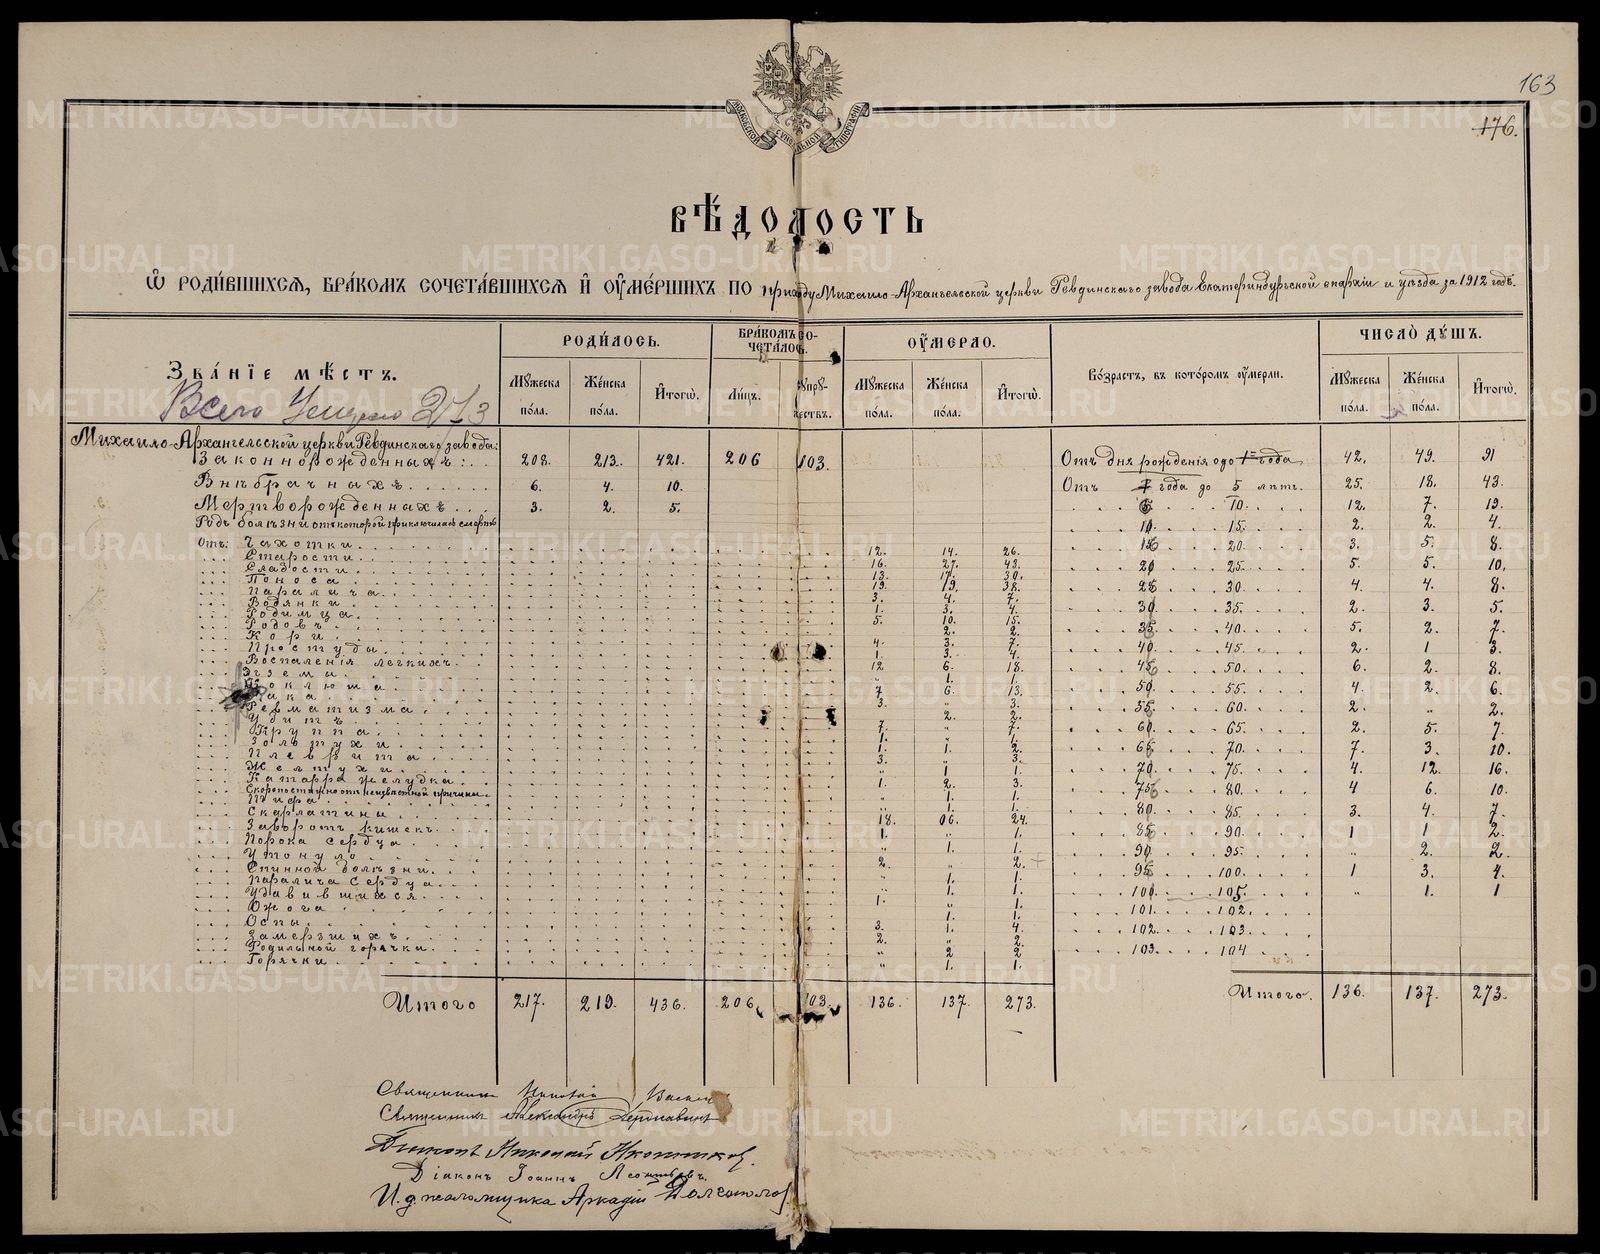 163
176.
МОСКОВСКОЙ СѴНОДАЛЬНОЙ ТИПОГРАФІИ
ВѢДОМОСТЬ
Ѡ РОДИ́ВШИХСЯ, БРА́КОМЪ СОЧЕТА́ВШИХСЯ И҆ ОУМЕ́РШИХЪ ПО приходу Михаило-Архангельской церкви Ревдинскаго завода Екатеринбургской епархіи и уѣзда за 1912 годъ.
ЗВА́НІЕ МѢ́СТЪ. РОДИ́ЛОСЬ. БРА́КОМЪ СОЧЕТА́ЛОСЬ. ОУ́МЕРЛО. Во́зрастъ, въ кото́ромъ оумерли. ЧИСЛО̀ ДꙊ́ШЪ.
Мꙋжеска по́ла. Же́нска по́ла. И҆тогѡ̀. Ли́цъ. Сꙋпрꙋжествъ. Мꙋжеска по́ла. Же́нска по́ла. И҆тогѡ̀. Мꙋжеска по́ла. Же́нска по́ла. И҆тогѡ̀.
Всего Умерло 273
Михаило-Архангельской церкви Ревдинскаго завода:
Законнорожденныхъ: 208. 213. 421. 206 103. Отъ дня рожденія до 1 года 42. 49. 91
Внѣбрачныхъ 6. 4. 10. Отъ 1 года до 5 лѣтъ. 25. 18. 43.
Мертворожденныхъ 3. 2. 5. 5 10. 12. 7. 19.
Родъ болѣзни отъ которой приключилась смерть 10 15. 2. 2. 4.
Отъ: Чахотки 12. 14. 26. 15 20. 3. 5. 8.
Старости 16. 27. 43. 20 25. 5. 5. 10.
Слабости 13. 17. 30.
Поноса 19. 19. 38. 25 30. 4. 4. 8.
Паралича 3. 4. 7.
Водянки 1. 3. 4. 30 35. 2. 3. 5.
Родимца 5. 10. 15.
Родовъ 2. 2. 35 40. 5. 2. 7.
Кори 4. 3. 7.
Простуды 1. 3. 4. 40. 45. 2. 1 3.
Воспаленія легкихъ 12 6. 18. 45 50. 6. 2. 8.
Экземы " 1. 1.
Коклюша 7 6. 13. 50. 55. 4. 2. 6.
Рака 3. " 3.
Ревматизма 2. 2. 55. 60. 2. " 2.
Убитъ 7. " 7.
Круппа 1. " 1. 60 65. 2. 5. 7.
Золотухи 1. 1. 2.
Плеврита 3. " 3. 65 70. 7. 3. 10.
Желтухи " 1 1. 70. 75. 4. 12. 16.
Катарра желудка 1. 2. 3.
Скоропостижно отъ неизвѣстной причины " 1. 1. 75 80. 4 6. 10.
Тифа " 1. 1.
Скарлатины 18. 06. 24. 80. 85. 3. 4. 7.
Заворотъ кишекъ 1. " 1. 85 90. 1 1 2.
Порока сердца " 1. 1.
Утонуло 2. " 2. 90. 95. " 2. 2.
Спинной болѣзни " 1. 1. 95 100. 1 3. 4.
Паралича сердца " 1. 1.
Удавившихся 1. " 1. 100. 105 " 1. 1
Ожога " 1. 1. 101. 102.
Оспы 3. 1. 4.
Замерзшихъ 2. " 2. 102. 103.
Родильной горячки " 2 2 103. 104
Горячки " 1. 1.
Итого 217. 219. 436. 206. 103. 136. 137. 273. Итого. 136. 137. 273.
Священникъ
Священникъ Александръ Державинъ
Діаконъ Николай
Діаконъ Іоаннъ Леонтьевъ.
И. д. псаломщика Аркадій
METRIKI.GASO-URAL.RU